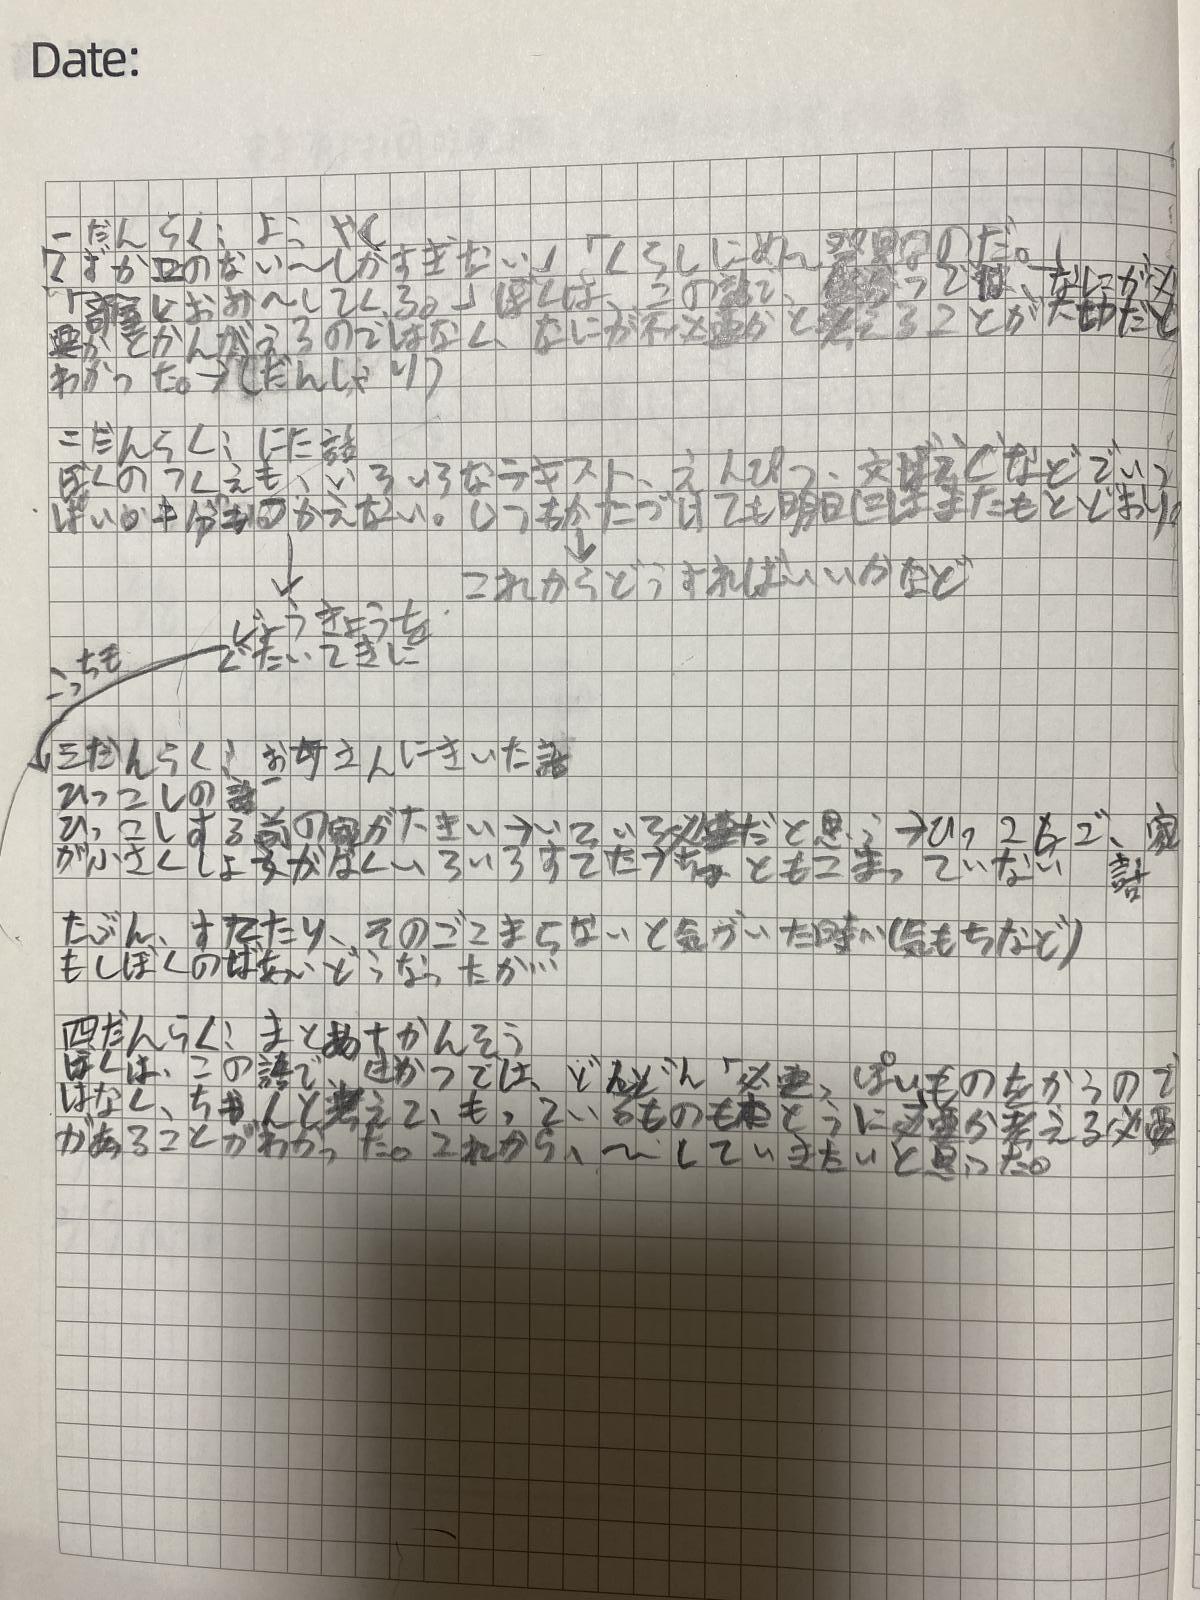 Date:
一だんらく: ようやく
「ずかエのない〜しかすぎない」「くらしにめん なのだ。」
「部屋におお〜してくる。」ぼくは、この話で、 っては、なにが必
要かとかんがえるのではなく、なにが不必要かと考えることが大切だと
わかった。→(だんしゃり)
二だんらく: にた話
ぼくのつくえも、いろいろなテキスト、えんぴつ、文ぼうぐなどでいっ
ぱい。半分もつかえない。いつもかたづけても明日にはまたもとどおり。
これからどうすればいいかなど
じょうきょうを
ぐたいてきに
こっちも
三だんらく: お母さんにきいた話
ひっこしの話
ひっこしする前の家が大きい→いろいろ必要だと思う→ひっこしで、家
が小さくしょ分がなくいろいろすてたちょっともこまっていない 話
たぶん、すてたり、そのごこまらないと気がいた時い(気もちなど)
もしぼくのばあいどうなったか…
四だんらく: まとめとかんそう
ぼくは、この話で、 かっては、どんどん「必要」っぽいものをかうので
はなく、ちゃんと考えて、もっているものも本とうに必要か考える必要
があることがわかった。これから、〜していきたいと思った。